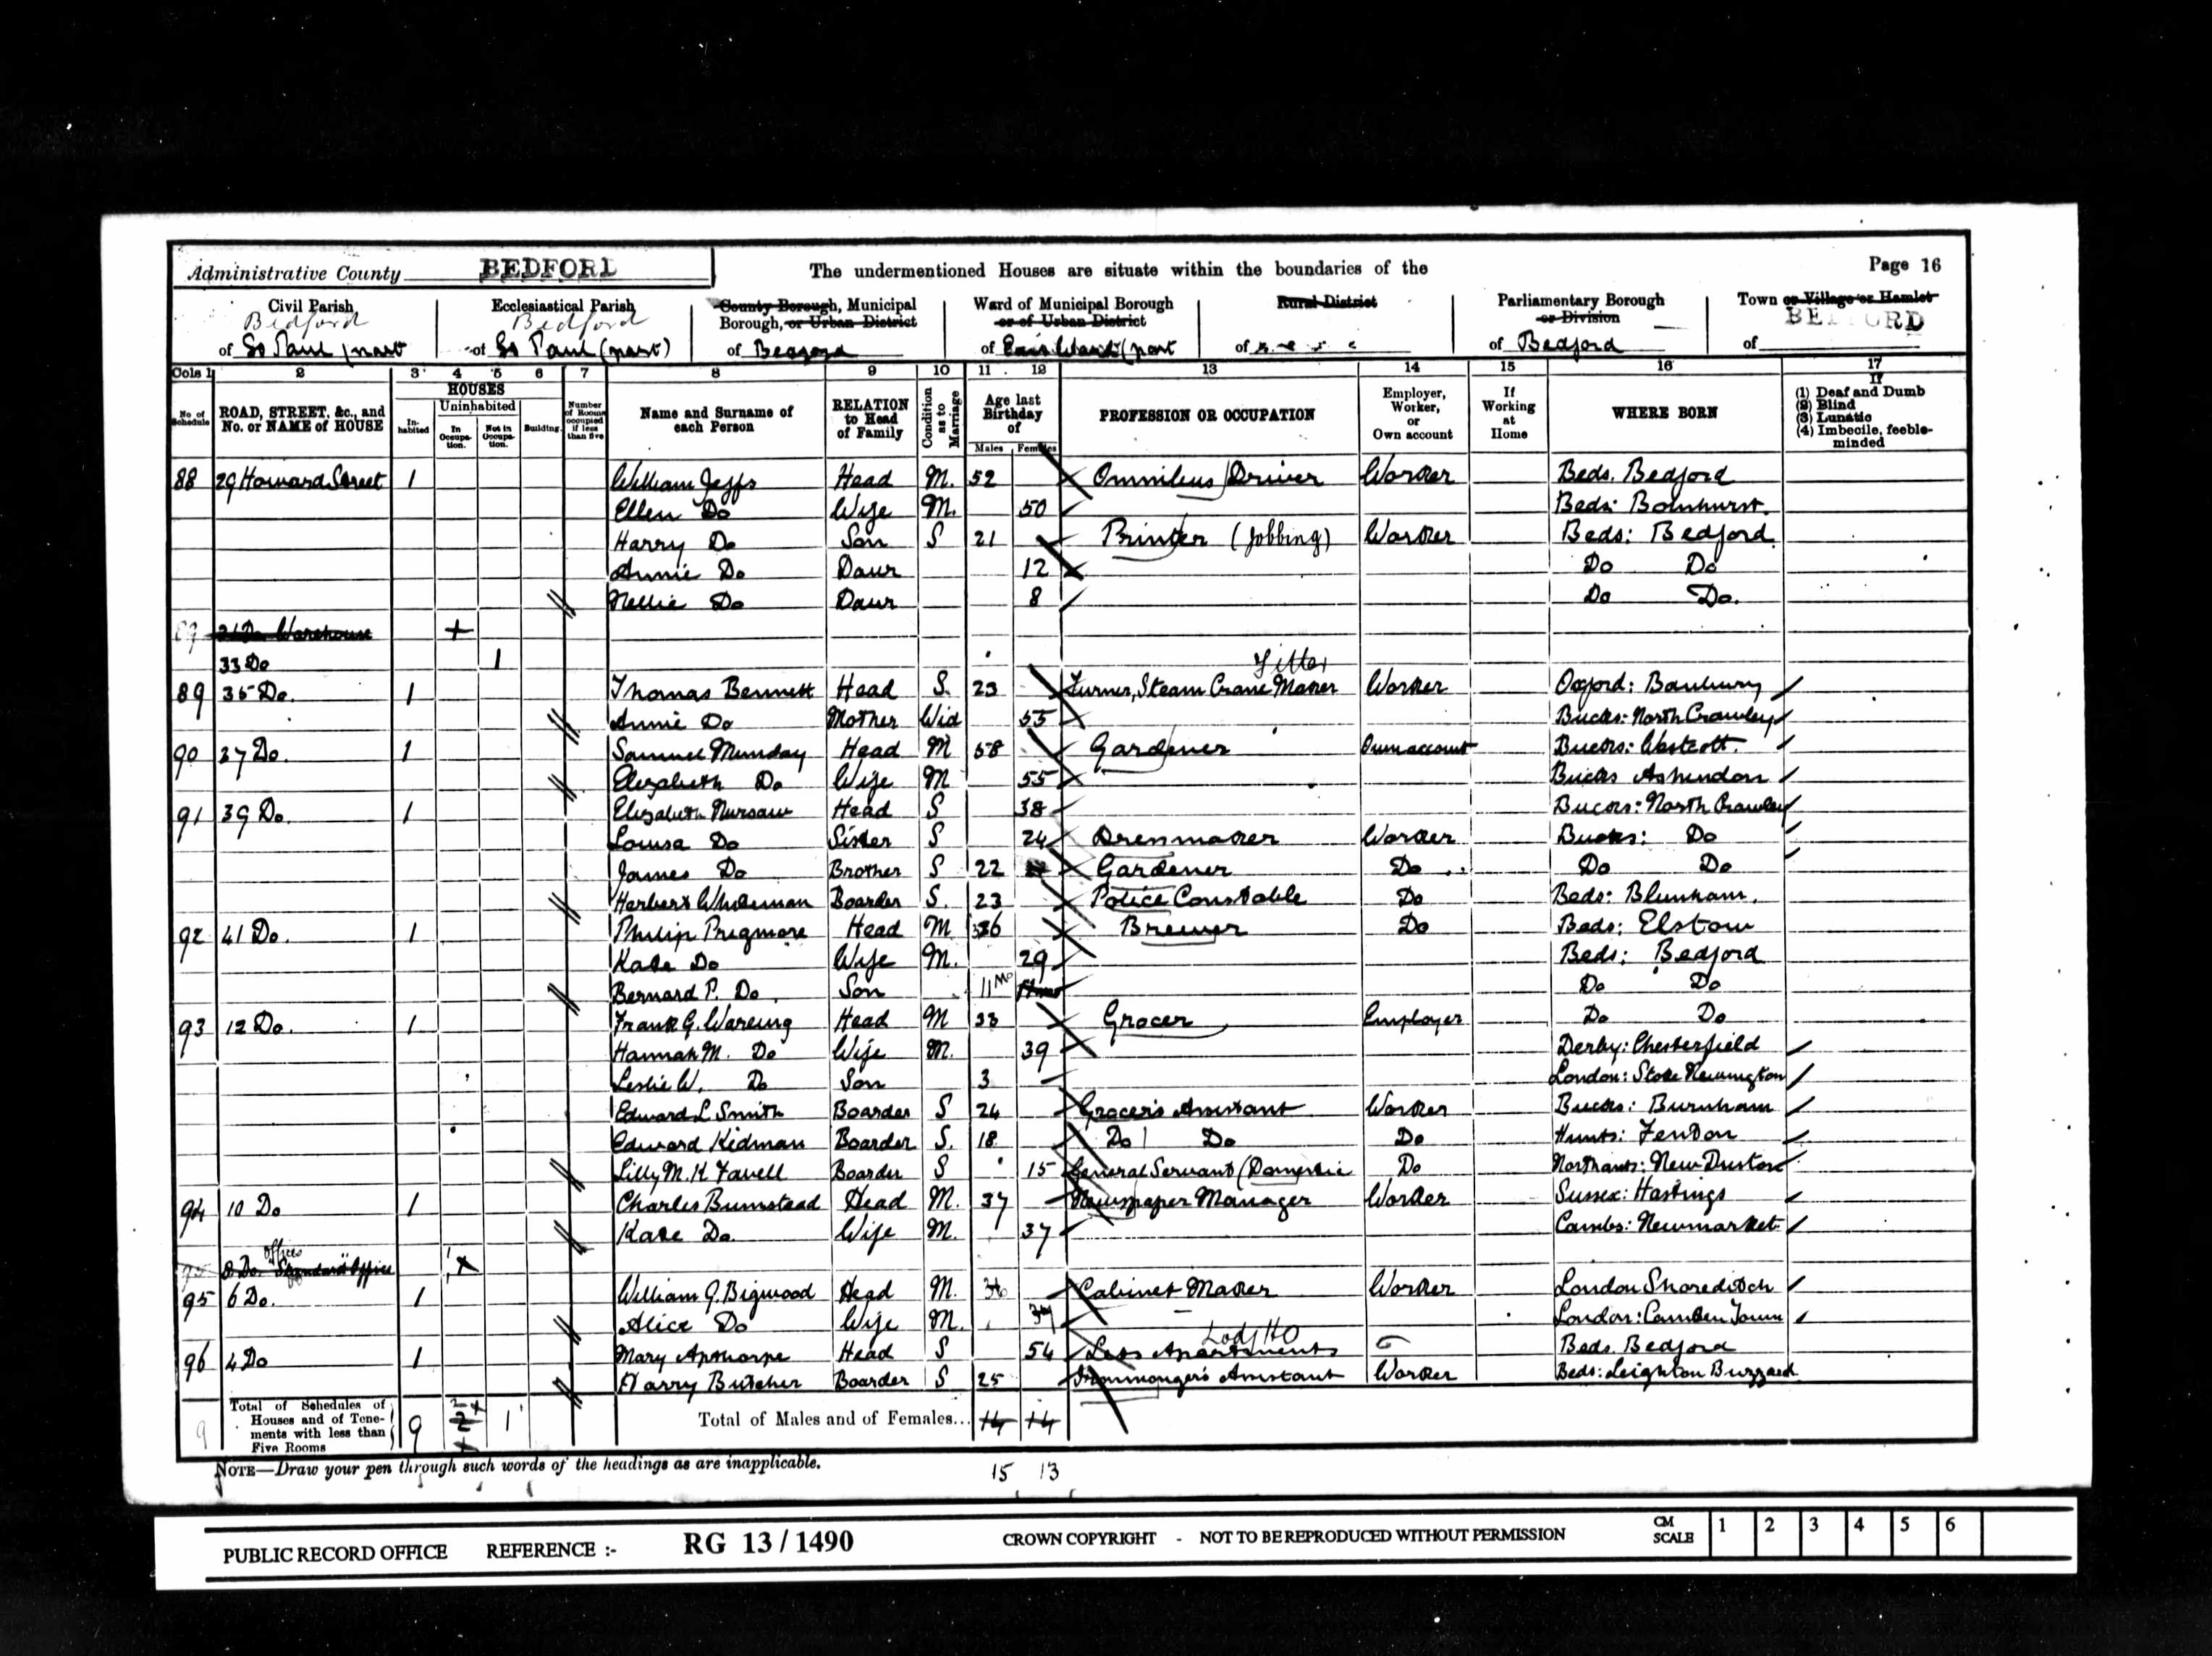 Administrative County BEDFORD The undermentioned Houses are situate within the boundaries of the Page 16
Civil Parish Ecclesiastical Parish County Borough, Municipal Ward of Municipal Borough Rural District Parliamentary Borough Town or Village or Hamlet
Bedford Bedford Borough, or Urban District or of Urban District or Division BEDFORD
of St Paul (part of St Paul (part) of Bedford of East Ward (part of of Bedford of
Cols 1 2 3 4 5 6 7 8 9 10 11 12 13 14 15 16 17
No of Schedule ROAD, STREET, &c., and No. or NAME of HOUSE HOUSES Inhabited Uninhabited In Occupation. Not in Occupation. Building Number of Rooms occupied if less than five Name and Surname of each Person RELATION to Head of Family Condition as to Marriage Age last Birthday of Males Females PROFESSION OR OCCUPATION Employer, Worker, or Own account If Working at Home WHERE BORN If (1) Deaf and Dumb (2) Blind (3) Lunatic (4) Imbecile, feeble-minded
88 29 Howard Street 1 William Jeffs Head M. 52 Omnibus Driver Worker Beds. Bedford
Ellen Do Wife M. 50 Beds: Bolnhurst.
Harry Do Son S 21 Printer (Jobbing) Worker Beds: Bedford
Annie Do Daur 12 Do Do
Nellie Do Daur 8 Do Do.
89 31 Do Warehouse
33 Do 1
Fitter
89 35 Do. 1 Thomas Bennett Head S. 23 Turner, Steam Crane Maker Worker Oxford: Banbury
Annie Do Mother Wid 55 Bucks: North Crawley
90 37 Do. 1 Samuel Munday Head M 58 Gardener Own account Bucks: Westcott.
Elizabeth Do Wife M 55 Bucks Ashendon
91 39 Do. 1 Elizabeth Nursaw Head S 38 Bucks: North Crawley
Louisa Do Sister S 24 Dressmaker Worker Bucks: Do
James Do Brother S 22 Gardener Do Do Do
Herbert Boarder S. 23 Police Constable Do Beds: Blunham.
92 41 Do. 1 Philip Prigmore Head M 36 Brewer Do Beds: Elstow
Kate Do Wife M. 29 Beds: Bedford
Bernard P. Do. Son 11 Mo Do Do
93 12 Do. 1 Frank G. Wareing Head M 33 Grocer Employer Do Do
Hannah M. Do Wife M. 39 Derby: Chesterfield
Leslie W. Do Son 3 London: Stoke Newington
Edward L Smith Boarder S 24 Grocer's Assistant Worker Bucks: Burnham
Edward Kidman Boarder S. 18 Do Do Do Hunts: Fenton
Lilly M. K Favell Boarder S 15 General Servant (Domestic Do Northants: New Duston
94 10 Do 1 Charles Bumstead Head M. 37 Newspaper Manager Worker Sussex: Hastings
Kate Do. Wife M. 37 Cambs: Newmarket
offices
95 8 Do. "Standard" Office 1
95 6 Do. 1 William G. Bigwood Head M. 36 Cabinet Maker Worker London Shoreditch
Alice Do Wife M. 37 London: Camden Town
Lodg Ho
96 4 Do 1 Mary Apthorpe Head S 54 Lets Apartments Beds. Bedford
Harry Butcher Boarder S 25 Ironmonger's Assistant Worker Beds: Leighton Buzzard
9 Total of Schedules of Houses and of Tenements with less than Five Rooms 9 2 1 Total of Males and of Females... 14 14
NOTE—Draw your pen through such words of the headings as are inapplicable. 15 13
PUBLIC RECORD OFFICE REFERENCE :- RG 13 / 1490 CROWN COPYRIGHT - NOT TO BE REPRODUCED WITHOUT PERMISSION CM SCALE 1 2 3 4 5 6